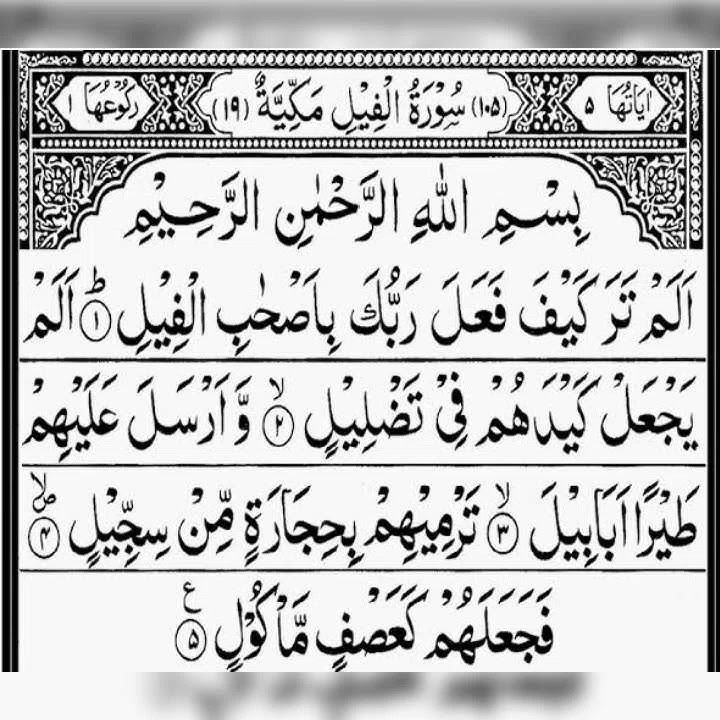 اٰيَاتُهَا ٥ (١٠٥) سُوْرَةُ الْفِيْلِ مَكِّيَّةٌ (١٩) رُكُوْعُهَا ١
بِسْمِ اللّٰهِ الرَّحْمٰنِ الرَّحِيْمِ
اَلَمْ تَرَ كَيْفَ فَعَلَ رَبُّكَ بِاَصْحٰبِ الْفِيْلِ ؕ ١ اَلَمْ
يَجْعَلْ كَيْدَهُمْ فِيْ تَضْلِيْلٍ ۙ ٢ وَّاَرْسَلَ عَلَيْهِمْ
طَيْرًا اَبَابِيْلَ ۙ ٣ تَرْمِيْهِمْ بِحِجَارَةٍ مِّنْ سِجِّيْلٍ ۙ ۪ۙ ۴
فَجَعَلَهُمْ كَعَصْفٍ مَّاْكُوْلٍ ع ۵